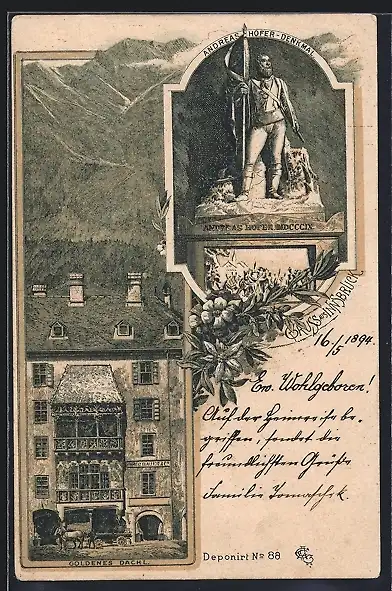 ANDREAS HOFER-DENKMAL
ANDREAS HOFER MDCCCIX
GRUSS aus INNSBRUCK
16./5 1894.
Ew. Wohlgeboren!
Auf der Heimreise be-
griffen, sendet die
freundlichsten Grüße
Familie Tomaschek
GOLDENES DACHL.
Deponirt No 88